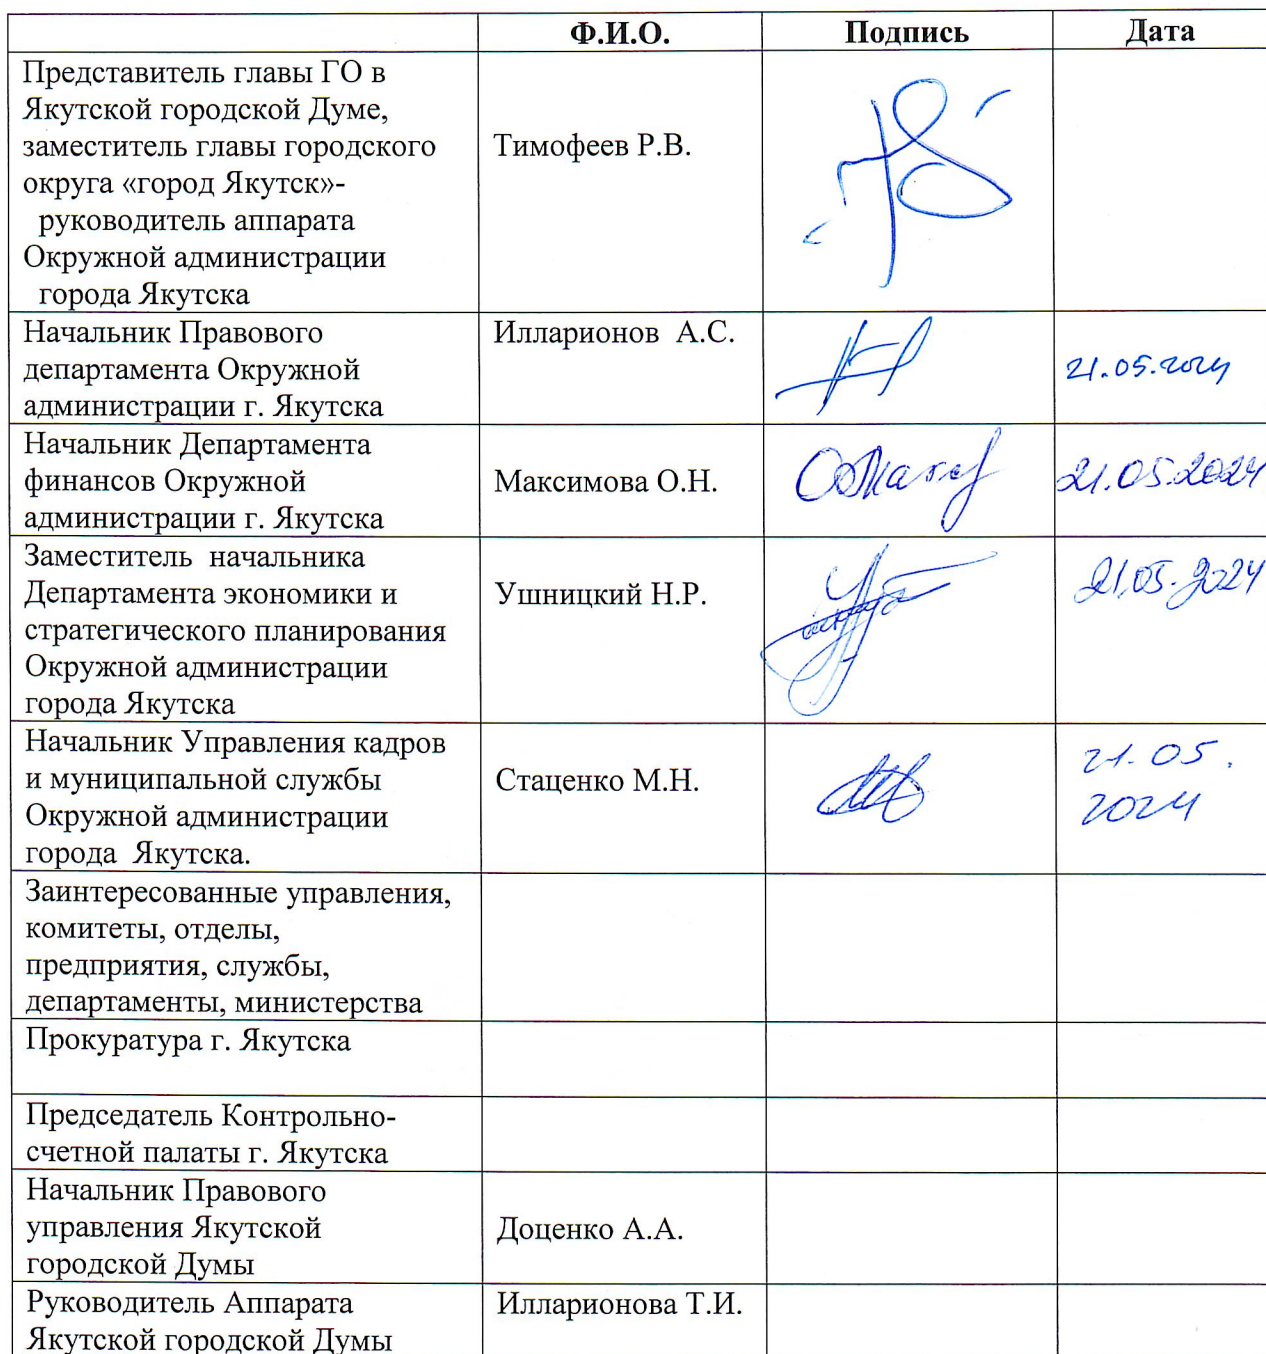 Ф.И.О. Подпись Дата
Представитель главы ГО в
Якутской городской Думе,
заместитель главы городского
округа «город Якутск»-
руководитель аппарата
Окружной администрации
города Якутска
Тимофеев Р.В.
Начальник Правового
департамента Окружной
администрации г. Якутска
Илларионов А.С.
21.05.2024
Начальник Департамента
финансов Окружной
администрации г. Якутска
Максимова О.Н.
21.05.2024
Заместитель начальника
Департамента экономики и
стратегического планирования
Окружной администрации
города Якутска
Ушницкий Н.Р.
21.05.2024
Начальник Управления кадров
и муниципальной службы
Окружной администрации
города Якутска.
Стаценко М.Н.
21.05.
2024
Заинтересованные управления,
комитеты, отделы,
предприятия, службы,
департаменты, министерства
Прокуратура г. Якутска
Председатель Контрольно-
счетной палаты г. Якутска
Начальник Правового
управления Якутской
городской Думы
Доценко А.А.
Руководитель Аппарата
Якутской городской Думы
Илларионова Т.И.